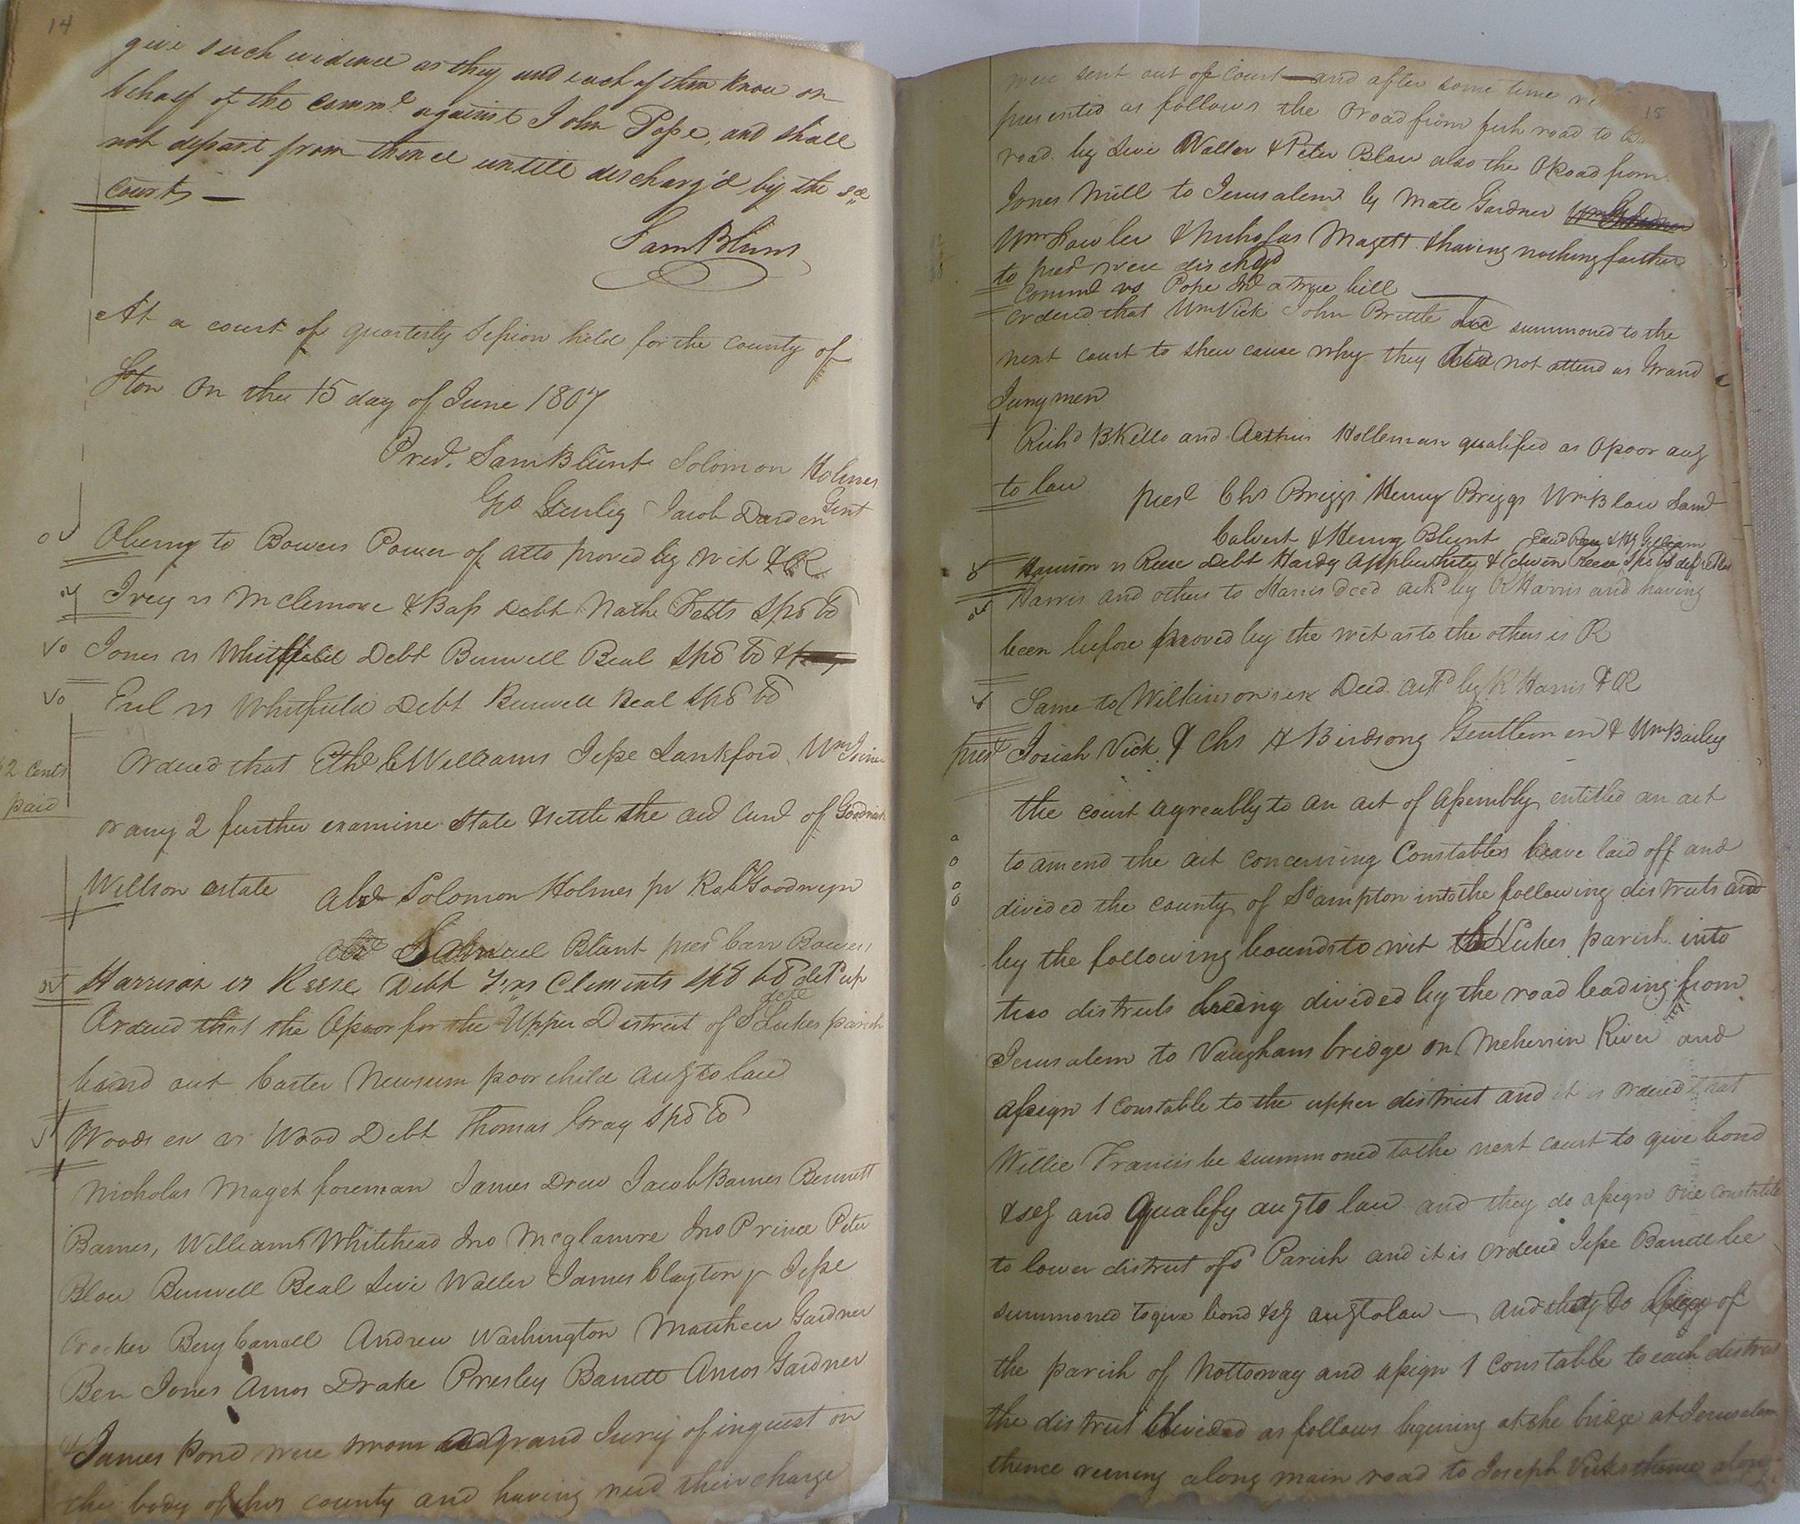 14
give such evidence as they and each of them know on
behalf of the commd. against John Pope, and shall
not depart from thence untill discharg'd by the sd
court —
Sam Blunt
At a court of quarterly Session held for the county of
Ston on the 15 day of June 1807
Pred. Sam Blunt Solomon Holmes
Geo Gurley Jacob Darden Gent
to Bowers Power of atto proved by wit & R
Ivey vs McLemore & Bass Debt Nath Felts Spd bd
Jones vs Whitfield Debt Burwell Beal Spd bd
vs Whitfield Debt Burwell Beal Spd bd
2 cents
paid
Ordered that Ethd Williams Jesse Lankford Wm
or any 2 further examine State & settle the acct of
Willson estate absd Solomon Holmes pr Robt Goodwyn
absd Samuel Blunt presd Carr Bowers
Harrison vs Reese Debt Clements Spd bd
Ordered that the Opoor for the Upper District of St Lukes parish
bind out Carter Newsum poor child acg to law
Woods vs Wood Debt Thomas Gray Spd bd
Nicholas Maget foreman James Drew Jacob Barnes Bennett
Barnes, Williams Whitehead Jno McGlamre Jno Prince Peter
Blow Burwell Beal Levi Waller James Clayton jr Jesse
Crocker Benj Carrell Andrew Washington Matthew Gardner
Ben Jones Amos Drake Presley Barrett Amos Gardner
& James Pond were sworn a grand Jury of inquest on
the body of this county and having recd their charge
15
were sent out of court — and after some time
presented as follows the Oroad from fish road to
road by Levi Waller & Peter Blow also the Oroad from
Jones Mill to Jerusalem by Mate Gardner
Wm Fowler & Nicholas Magett & having nothing farther
to presd were dischgd
Commd vs Pope Ind a true bill
ordered that Wm Vick John Brittle be summoned to the
next court to shew cause why they did not attend as Grand
Jurymen
Richd B Kello and Arthur Holleman qualified as Opoor acg
to law presd Chs Briggs Henry Briggs Wm Blow Saml
Calvert & Henry Blunt
Harrison vs Reese Debt Hardy Applewhite & Edwin Reese Spd bd
Harris and others to Harris deed ackd by R Harris and having
been before proved by the wit as to the others is R
Same to Wilkinson Deed ackd by R Harris & R
presd Josiah Vick & Chs A Birdsong Gentlemen & Wm Bailey
the court agreably to an act of Assembly entitled an act
to amend the act concerning Constables have laid off and
divided the county of So ampton into the following districts and
by the following bounds to wit St Lukes parish into
two districts being divided by the road leading from
Jerusalem to Vaughans bridge on Meherrin River and
assign 1 constable to the upper district and it is ordered that
Willie Francis be summoned to the next court to give bond
& scy and qualify acg to law and they do assign one constable
to lower district of sd Parish and it is ordered Jesse Barrett be
summoned to give bond & scy acg to law — and they do of
the parish of Nottoway and assign 1 constable to each district
the district divided as follows begining at the bridge at Jerusalem
thence runing along main road to Joseph Vicks thence along